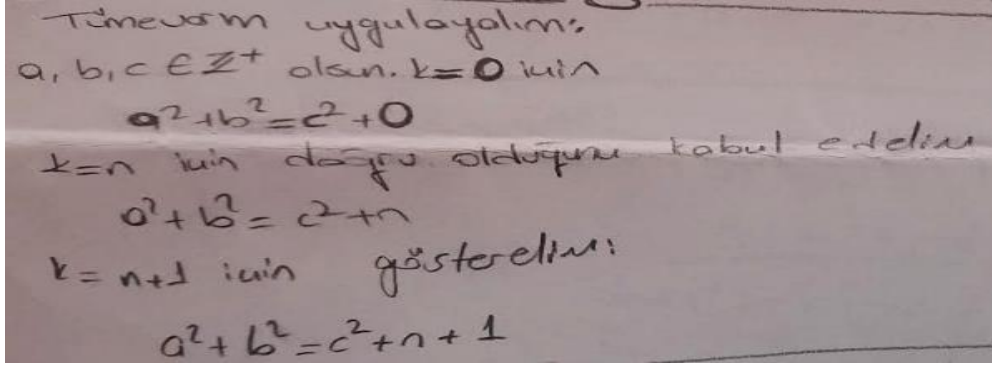 Tümevarım uygulayalım:
a, b, c ∈ Z⁺ olsun. k=0 için
a²+b²=c²+0
k=n için doğru olduğunu kabul edelim
a²+b²=c²+n
k=n+1 için gösterelim:
a²+b²=c²+n+1